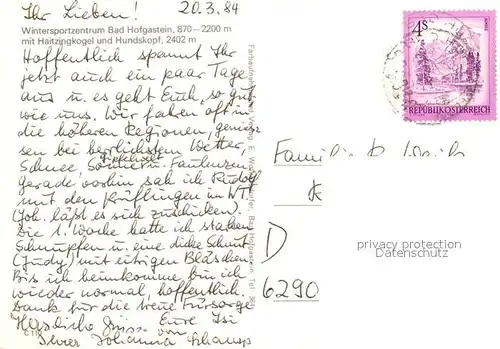 Ihr Lieben! 20.3.84
Wintersportzentrum Bad Hofgastein, 870–2200 m
mit Haitzingkogel und Hundskopf, 2402 m
Hoffentlich spannt Ihr
jetzt auch ein paar Tage
aus u. es geht Euch so gut
wie uns. Wir fahren oft in
die höheren Regionen, genies-
sen bei herrlichstem Wetter,
Schnee, Sonne u. Faulenzen
gerade vorhin sah ich Rudolf
mit den Prüflingen im WTT
(Joh. läßt es sich zuschicken).
Die 1. Woche hatte ich starken
Schnupfen u. eine dicke Schnut
(Judy) mit eitrigen Bläschen.
Bis ich heimkomme bin ich
wieder normal, hoffentlich.
Dank für die treue Fürsorge
Herzliche Grüsse Eure Isi
von
Johanna
4S
REPUBLIK ÖSTERREICH
Familie
K
D
6290
privacy protection
Datenschutz